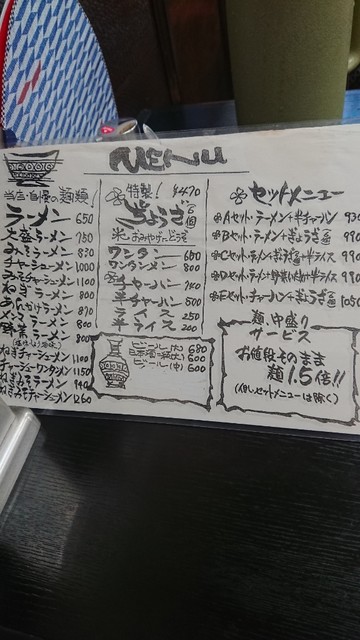 MENU
当店自慢の麺類!
ラーメン 650
大盛ラーメン 750
みそラーメン 830
チャーシューメン 1000
みそチャーシューメン 1100
ねぎラーメン 800
あんかけラーメン 870
メンマラーメン 800
野菜ラーメン 800
ねぎチャーシューメン 1100
チャーシューワンタンメン 1150
ねぎみそラーメン 940
ねぎみそチャーシューメン 1260
特製! ¥470
ぎょうざ 6個
※おみやげにどうぞ
ワンタン 600
ワンタンメン 800
チャーハン 700
半チャーハン 500
ライス 250
半ライス 200
ビール(大) 680
日本酒 600
ビール(中) 600
セットメニュー
Aセット・ラーメン+半チャーハン
Bセット・ラーメン+ぎょうざ 990
Cセット・ラーメン+ぎょうざ+半ライス 990
Dセット・ラーメン+野菜いため+半ライス 990
Eセット・チャーハン+ぎょうざ 1050
麺、中盛り
サービス
お値段そのまま
麺1.5倍!!
(但し、セットメニューは除く)